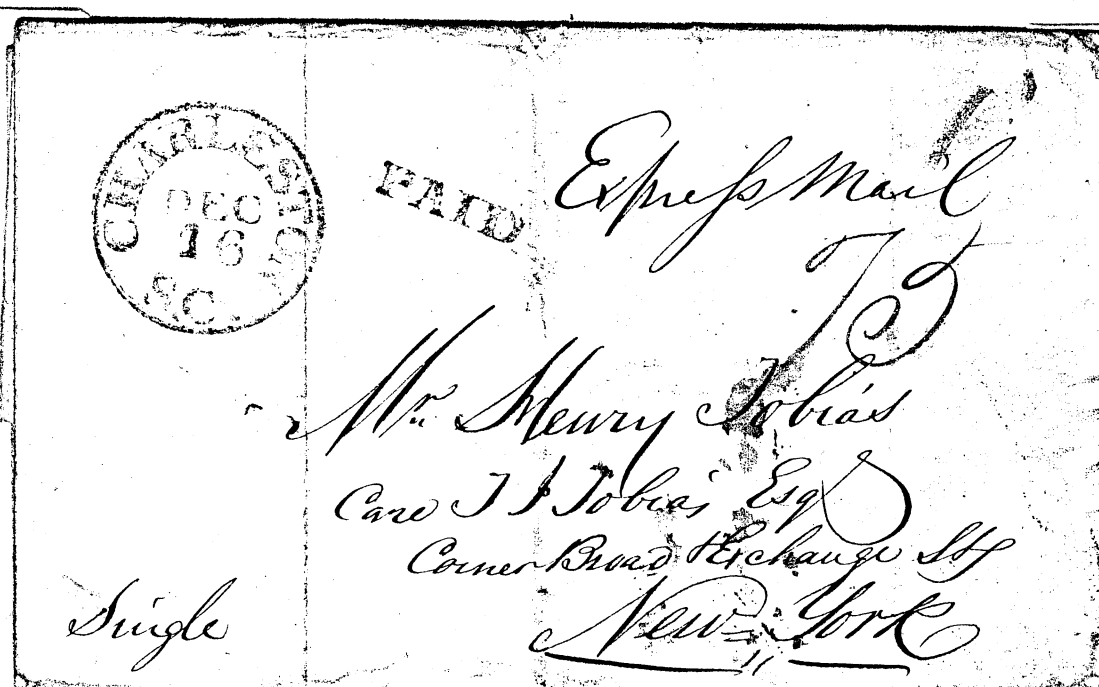 CHARLESTON
DEC
16
SC.
PAID
Express Mail
75
Mr. Henry Tobias
Care T I Tobias Esqr
Corner Broad & Exchange Sts
New York
Single